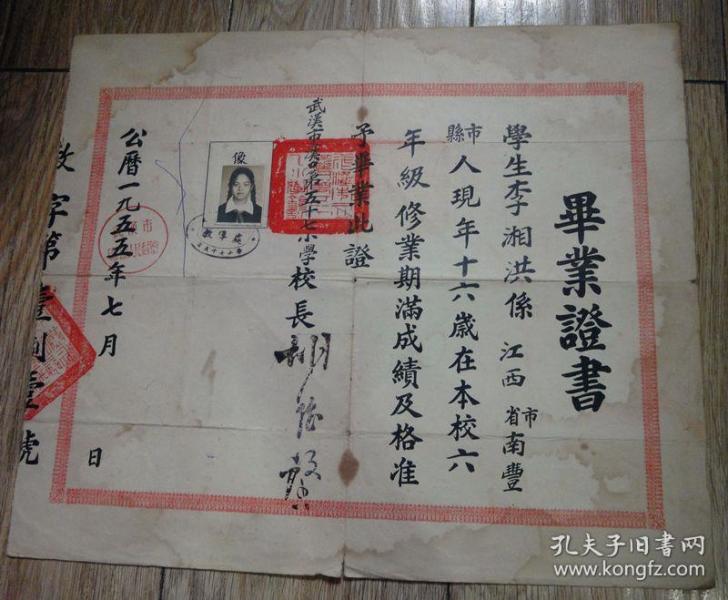 畢業證書
學生李湘洪係江西省市南豐
市縣人現年十六歲在本校六
年級修業期滿成績及格准
予畢業此證
武漢市漢口第五十七小學校長胡
像
公曆一九五五年七月 日
教字第壹 壹號
孔夫子旧书网
www.kongfz.com